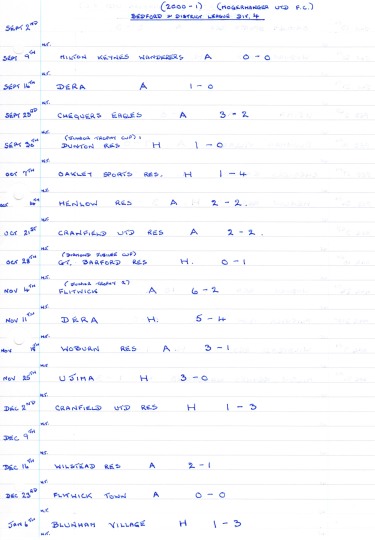 (2000-1) (MOGERHANGER UTD F.C.)
BEDFORD & DISTRICT LEAGUE DIV. 4
SEPT 2ND
SEPT 9TH MILTON KEYNES WANDERERS A 0-0
SEPT 16TH DERA A 1-0
SEPT 23RD CHEQUERS EAGLES A 3-2
(JUNIOR TROPHY CUP) 1
SEPT 30TH DUNTON RES H 1-0
OCT 7TH OAKLEY SPORTS RES. H 1-4
OCT HENLOW RES A 2-2.
OCT 21ST CRANFIELD UTD RES A 2-2.
(DIAMOND JUBILEE CUP)
OCT 28TH GT. BARFORD RES H. 0-1
(JUNIOR TROPHY 2)
NOV 4TH FLITWICK A 6-2
NOV 11TH DERA H. 5-4
NOV 18TH WOBURN RES A. 3-1
NOV 25TH UJIMA H 3-0
DEC 2ND CRANFIELD UTD RES H 1-3
DEC 9TH
DEC 16TH WILSTEAD RES A 2-1
DEC 23RD FLITWICK TOWN A 0-0
JAN 6TH BLUNHAM VILLAGE H 1-3